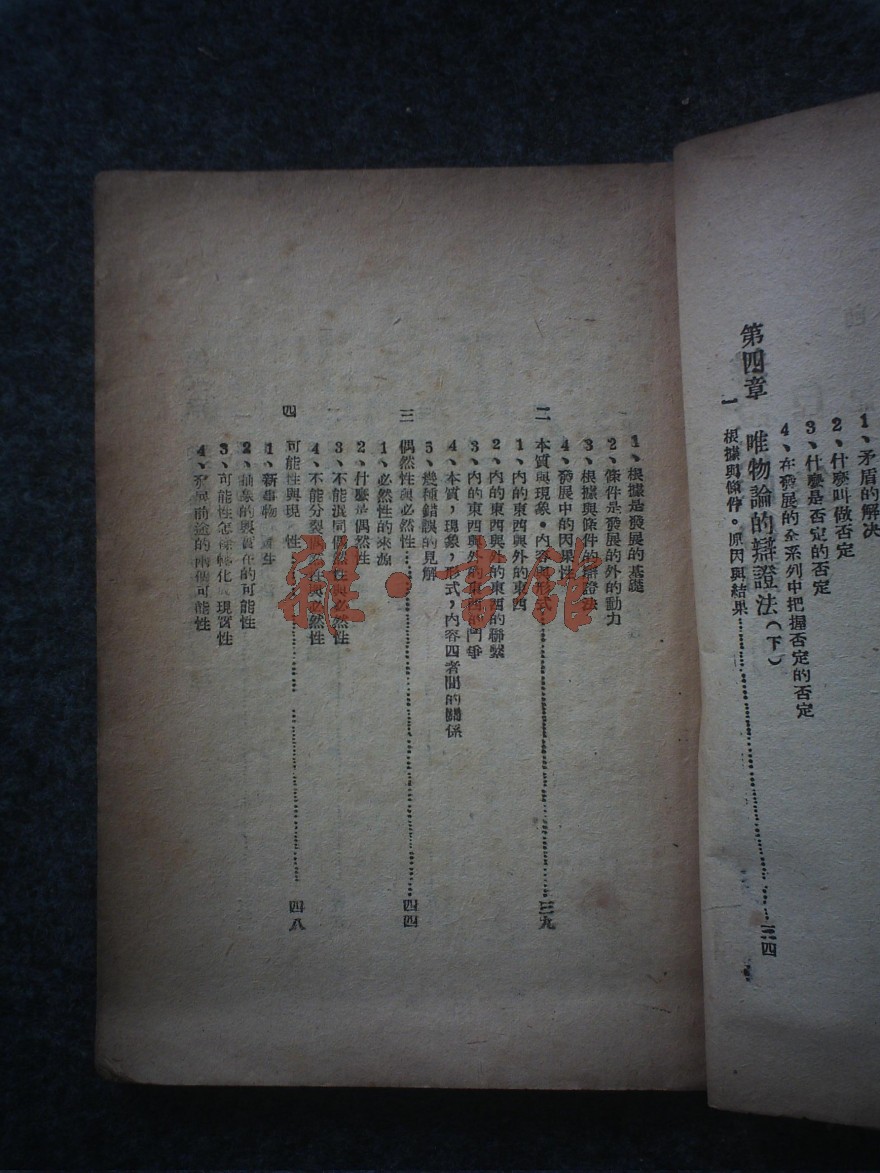 1、矛盾的解決
2、什麼叫做否定
3、什麼是否定的否定
4、在發展的全系列中把握否定的否定
第四章 唯物論的辯證法(下)
一 根據與條件。原因與結果……三四
1、根據是發展的基礎
2、條件是發展的外的動力
3、根據與條件的辯證法
4、發展中的因果性
二 本質與現象・內容與形式……三九
1、內的東西與外的東西
2、內的東西與外的東西的聯繫
3、內的東西與外的東西的鬥爭
4、本質,現象,形式,內容四者間的關係
5、幾種錯誤的見解
三 偶然性與必然性……四四
1、必然性的來源
2、什麼是偶然性
3、不能混同偶然性與必然性
4、不能分裂偶然性與必然性
四 可能性與現 性……四八
1、新事物 生
2、抽象的與實在的可能性
3、可能性怎樣轉化 現實性
4、發展前途的兩個可能性
雜・書館